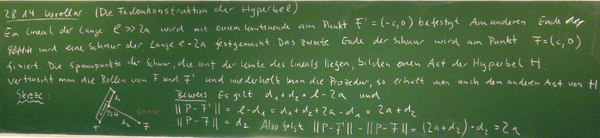 28.14 Korollar. (Die Fadenkonstruktion der Hyperbel)
Ein Lineal der Länge ℓ >> 2a wird mit einem Ende am Punkt F' = (-c,0) befestigt. Am anderen Ende des
wird eine Schnur der Länge ℓ - 2a festgemacht. Das zweite Ende der Schnur wird am Punkt F = (c,0)
fixiert. Die Spannpunkte der Schnur, die auf der Kante des Lineals liegen, bilden einen Ast der Hyperbel H.
Vertauscht man die Rollen von F und F' und wiederholt man die Prozedur, so erhält man auch den anderen Ast von H
Skizze:
Beweis Es gilt d₁ + d₂ = ℓ - 2a und
||P - F'|| = ℓ - d₁ = d₁ + d₂ + 2a - d₁ = 2a + d₂
||P - F|| = d₂ Also folgt ||P - F'|| - ||P - F|| = (2a + d₂) - d₂ = 2a
d₁
d₂
F'
F